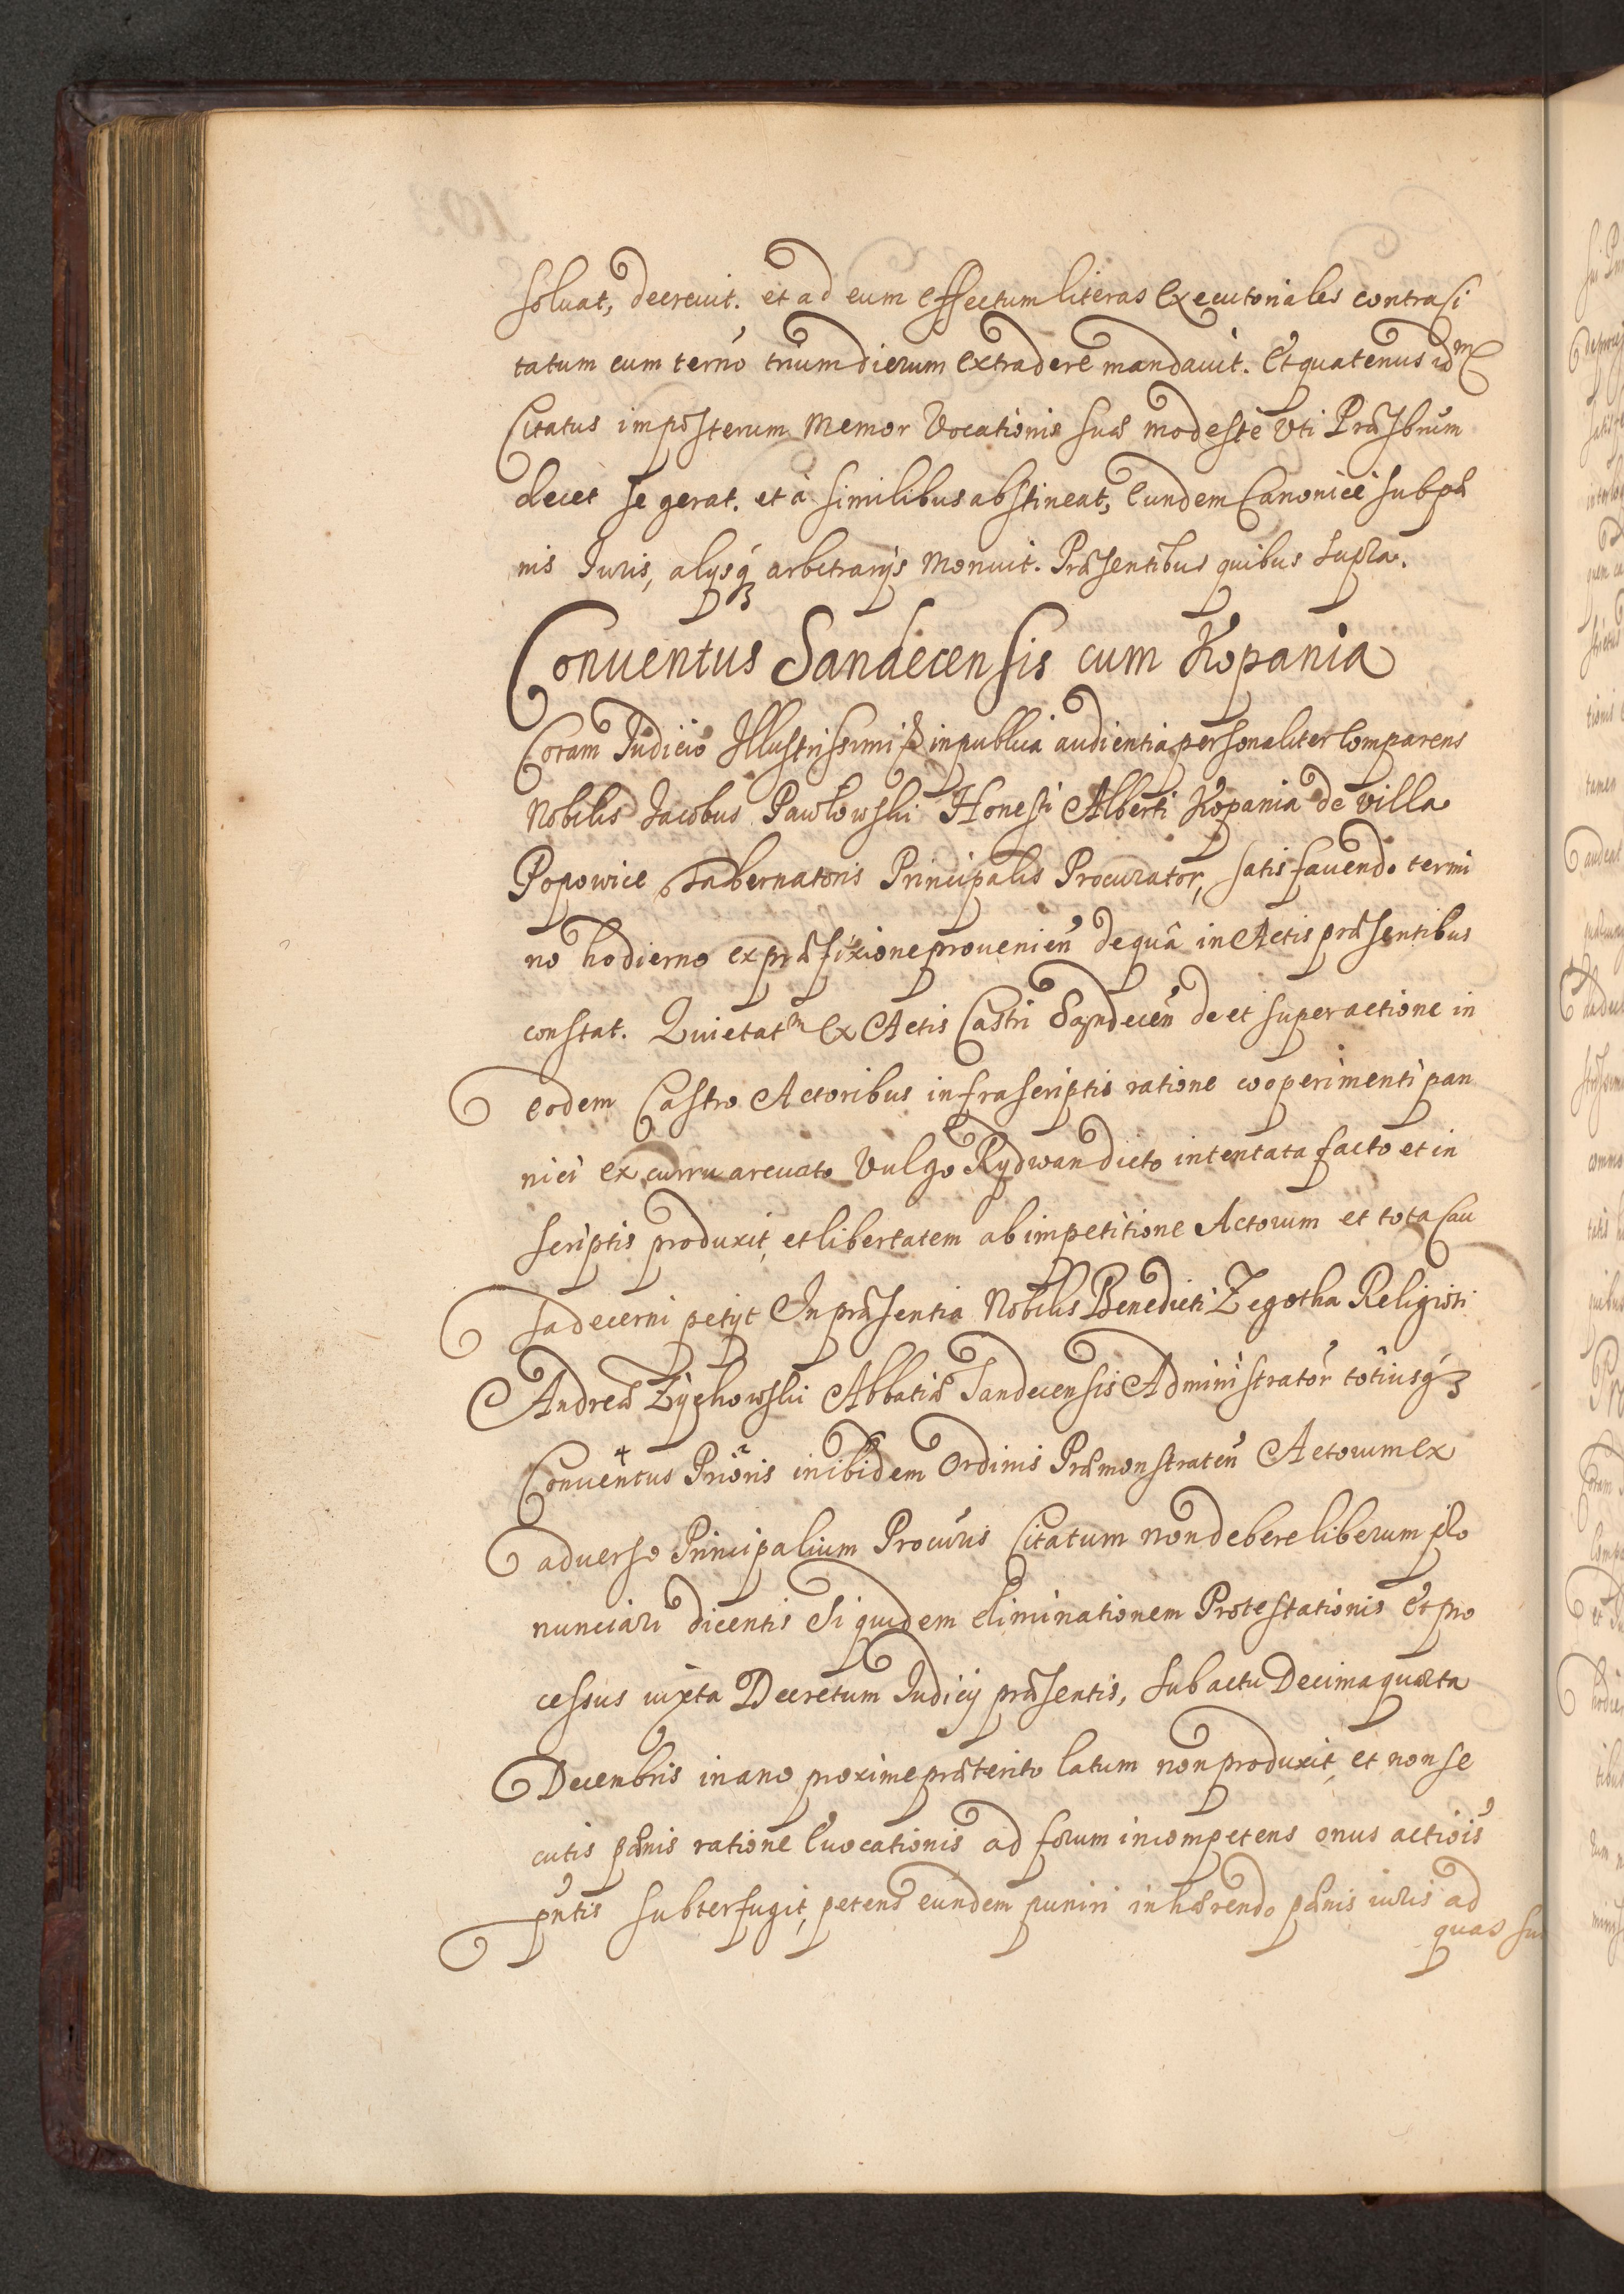 soluat, decreuit. et ad eum effectum literas Executoriales contra Ci
tatum cum terno trium dierum extradere mandauit. Et quatenus idm
Citatus imposterum memor Vocationis suæ modeste vti Præsbrum
decet se gerat. et à similibus abstineat, eundem Canonicè sub pæ
nis Iuris, alysq arbitrarys monuit. Præsentibus quibus supra.
Conuentus Sandecensis cum Kopania
Coram Iudicio Illustrissimi & in publica audientia personaliter Comparens
Nobilis Iacobus Pawłowski Honesti Alberti Kopania de villa
Popowice Tabernatoris Principalis Procurator, satisfaciendo termi
no hodierno ex præfixione prouenien de quâ in Actis præsentibus
constat. Quietatm Ex Actis Castri Sandecen de et super actione in
eodem Castro Actoribus infrascriptis ratione cooperimenti pan
nici ex curru arcuato Vulgo Rydwan dicto intentata facto et in
scriptis produxit, et libertatem ab impetitione Actorum et tota Cau
sa decerni petyt In præsentia Nobilis Benedicti Zegotha Religiosi
Andreæ Zÿchowski Abbatiæ Sandecensis Administrator totiusq
Conuentus Prioris inibidem Ordinis Præmonstraten Actorum ex
aduerso Principalium Procuris Citatum non debere liberum pro
nunciari dicentis Siquidem eliminationem Protestationis et pro
cessus iuxta Decretum Iudicij præsentis, sub actu Decimaquarta
Decembris in ano proxime præterito latum non produxit, et non se
cutis pænis ratione Euocationis ad forum incompetens onus actiois
pntis subterfugit, petens eundem puniri inhærendo pænis iuris ad
quas su